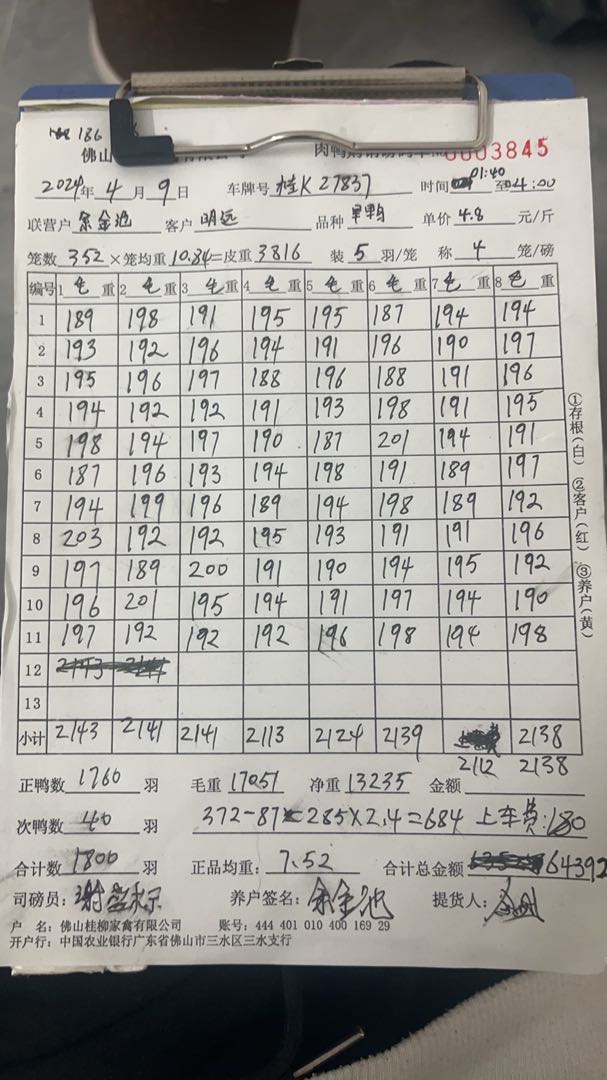 186
佛山
肉鸭购销磅码单 0003845
2024年 4 月 9 日 车牌号 桂K27837 时间 01:40 至 4:00
联营户 余金池 客户 明远 品种 单价 4.8 元/斤
笼数 352 ×笼均重 10.84 =皮重 3816 装 5 羽/笼 称 4 笼/磅
编号 1 毛 重 2 毛 重 3 毛 重 4 毛 重 5 毛 重 6 毛 重 7 毛 重 8 毛 重
1 189 198 191 195 195 187 194 194
2 193 192 196 194 191 196 190 197
3 195 196 197 188 196 188 191 196
4 194 192 192 191 193 198 191 195
5 198 194 197 190 187 201 194 191
6 187 196 193 194 198 191 189 197
7 194 199 196 189 194 198 189 192
8 203 192 192 195 193 191 191 196
9 197 189 200 191 190 194 195 192
10 196 201 195 194 191 197 194 190
11 197 192 192 192 196 198 194 198
12 2143 2141
13
小计 2143 2141 2141 2113 2124 2139 2138
2112 2138
正鸭数 1760 羽 毛重 17051 净重 13235 金额
次鸭数 40 羽 372-87=285×2.4=684 上车费:180
合计数 1800 羽 正品均重: 7.52 合计总金额 64392
司磅员: 养户签名: 余金池 提货人:
户 名: 佛山桂柳家禽有限公司 账号: 444 401 010 400 169 29
开户行: 中国农业银行广东省佛山市三水区三水支行
①存根(白) ②客户(红) ③养户(黄)